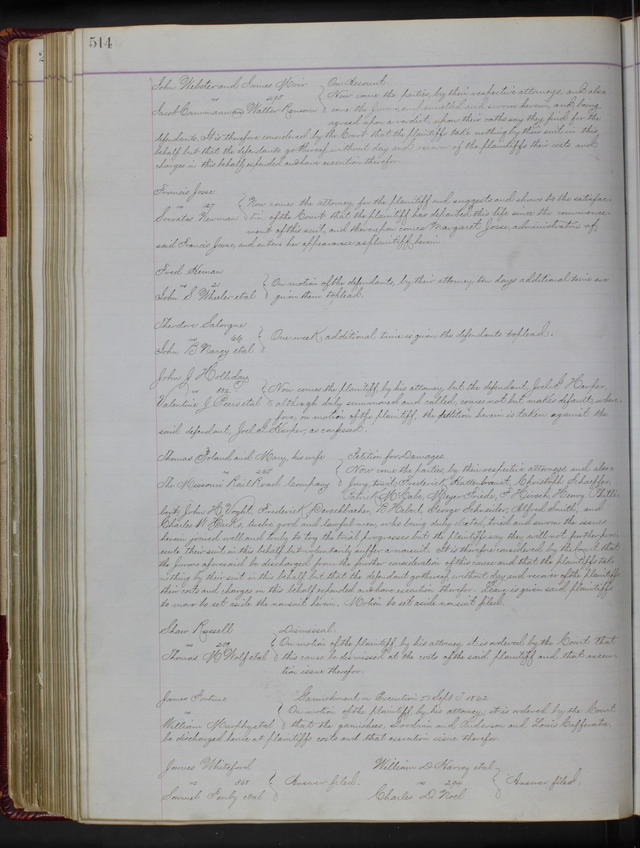 514
John Webster and James Weir } On Account.
vs 298 Now come the parties, by their respective attorneys, and also
Jacob Cammann and Walter Ransom come the jurors, empanelled and sworn herein, and being
agreed upon a verdict, upon their oath say they find for the
defendants. It is therefore considered by the Court that the plaintiffs take nothing by their suit in this
behalf but that the defendants go thereof without day and recover of the plaintiffs their costs and
charges in this behalf expended and have execution therefor.
Francis Josse
vs 127 } Now comes the attorney for the plaintiff and suggests and shows to the satisfac-
Socrates Newman tion of the Court that the plaintiff has departed this life since the commence-
ment of this suit, and thereupon comes Margaret Josse, administratrix of
said Francis Josse, and enters her appearance as plaintiff herein.
Fred Heman
vs 21 } On motion of the defendants, by their attorney, ten days additional time are
John S Wheeler et al given them to plead.
Theodore Salorgne
vs 66 } One week additional time is given the defendants to plead.
John B Narcy et al
John J Holliday
vs 172 } Now comes the plaintiff by his attorney, but the defendant, Joel S Harper,
Valentine J Peers et al although duly summoned and called, comes not but makes default; where-
fore, on motion of the plaintiff, the petition herein is taken against the
said defendant, Joel S Harper, as confessed.
Thomas Poland and Mary, his wife } Petition for Damages
vs 258 Now come the parties, by their respective attorneys, and also a
The Missouri Rail Road Company jury, to wit, Frederick Hattenbrount, Christoph Schaeffer,
Patrick McCabe, Meyer Friede, F Hirsch, Henry Phill-
John H Voght, Frederick Darschbacher, R Hebert, George Schneider, Alford Smith, and
Charles W. twelve good and lawful men, who being duly elected, tried and sworn the issues
herein joined well and truly to try the trial progresses but the plaintiffs say they will not further prose-
cute their suit in this behalf but voluntarily suffer a nonsuit. It is therefore considered by the Court that
the jurors aforesaid be discharged from the further consideration of this cause and that the plaintiffs take
nothing by their suit in this behalf but that the defendant go thereof without day and recover of the plaintiffs
their costs and charges in this behalf expended and have execution therefor. Leave is given said plaintiffs
to move to set aside the nonsuit herein. Motion to set aside nonsuit filed.
Shaw Russell } Dismissal.
vs 279 On motion of the plaintiff, by his attorney, it is ordered by the Court that
Thomas M Wolf et al this cause be dismissed at the costs of the said plaintiff and that execu-
tion issue therefor.
James Fortune } Garnishment on Execution 57 Sept T. 1862
vs On motion of the plaintiff, by his attorney, it is ordered by the Court
William Murphy et al that the garnishees, and Anderson and Louis
be discharged hence at plaintiffs costs and that execution issue therefor.
James Whiteford
vs 363 } Answer filed.
Samuel Fenby et al
William D Harvey et al
vs 294 } Answer filed.
Charles D Noel